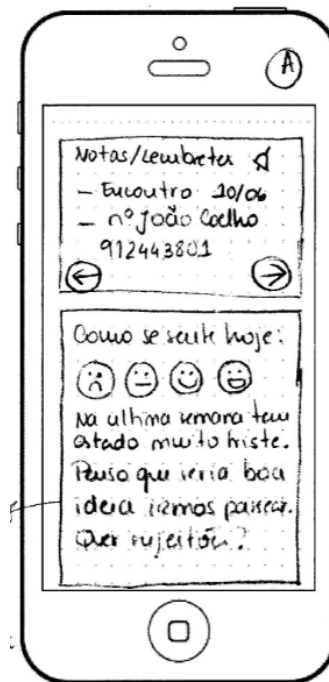 A
Notas/Lembretes
- Encontro 10/06
- nº João Coelho
912443801
Como se sente hoje:
Na ultima semana tem
estado muito triste.
Penso que seria boa
ideia irmos passear.
Quer sujestões?